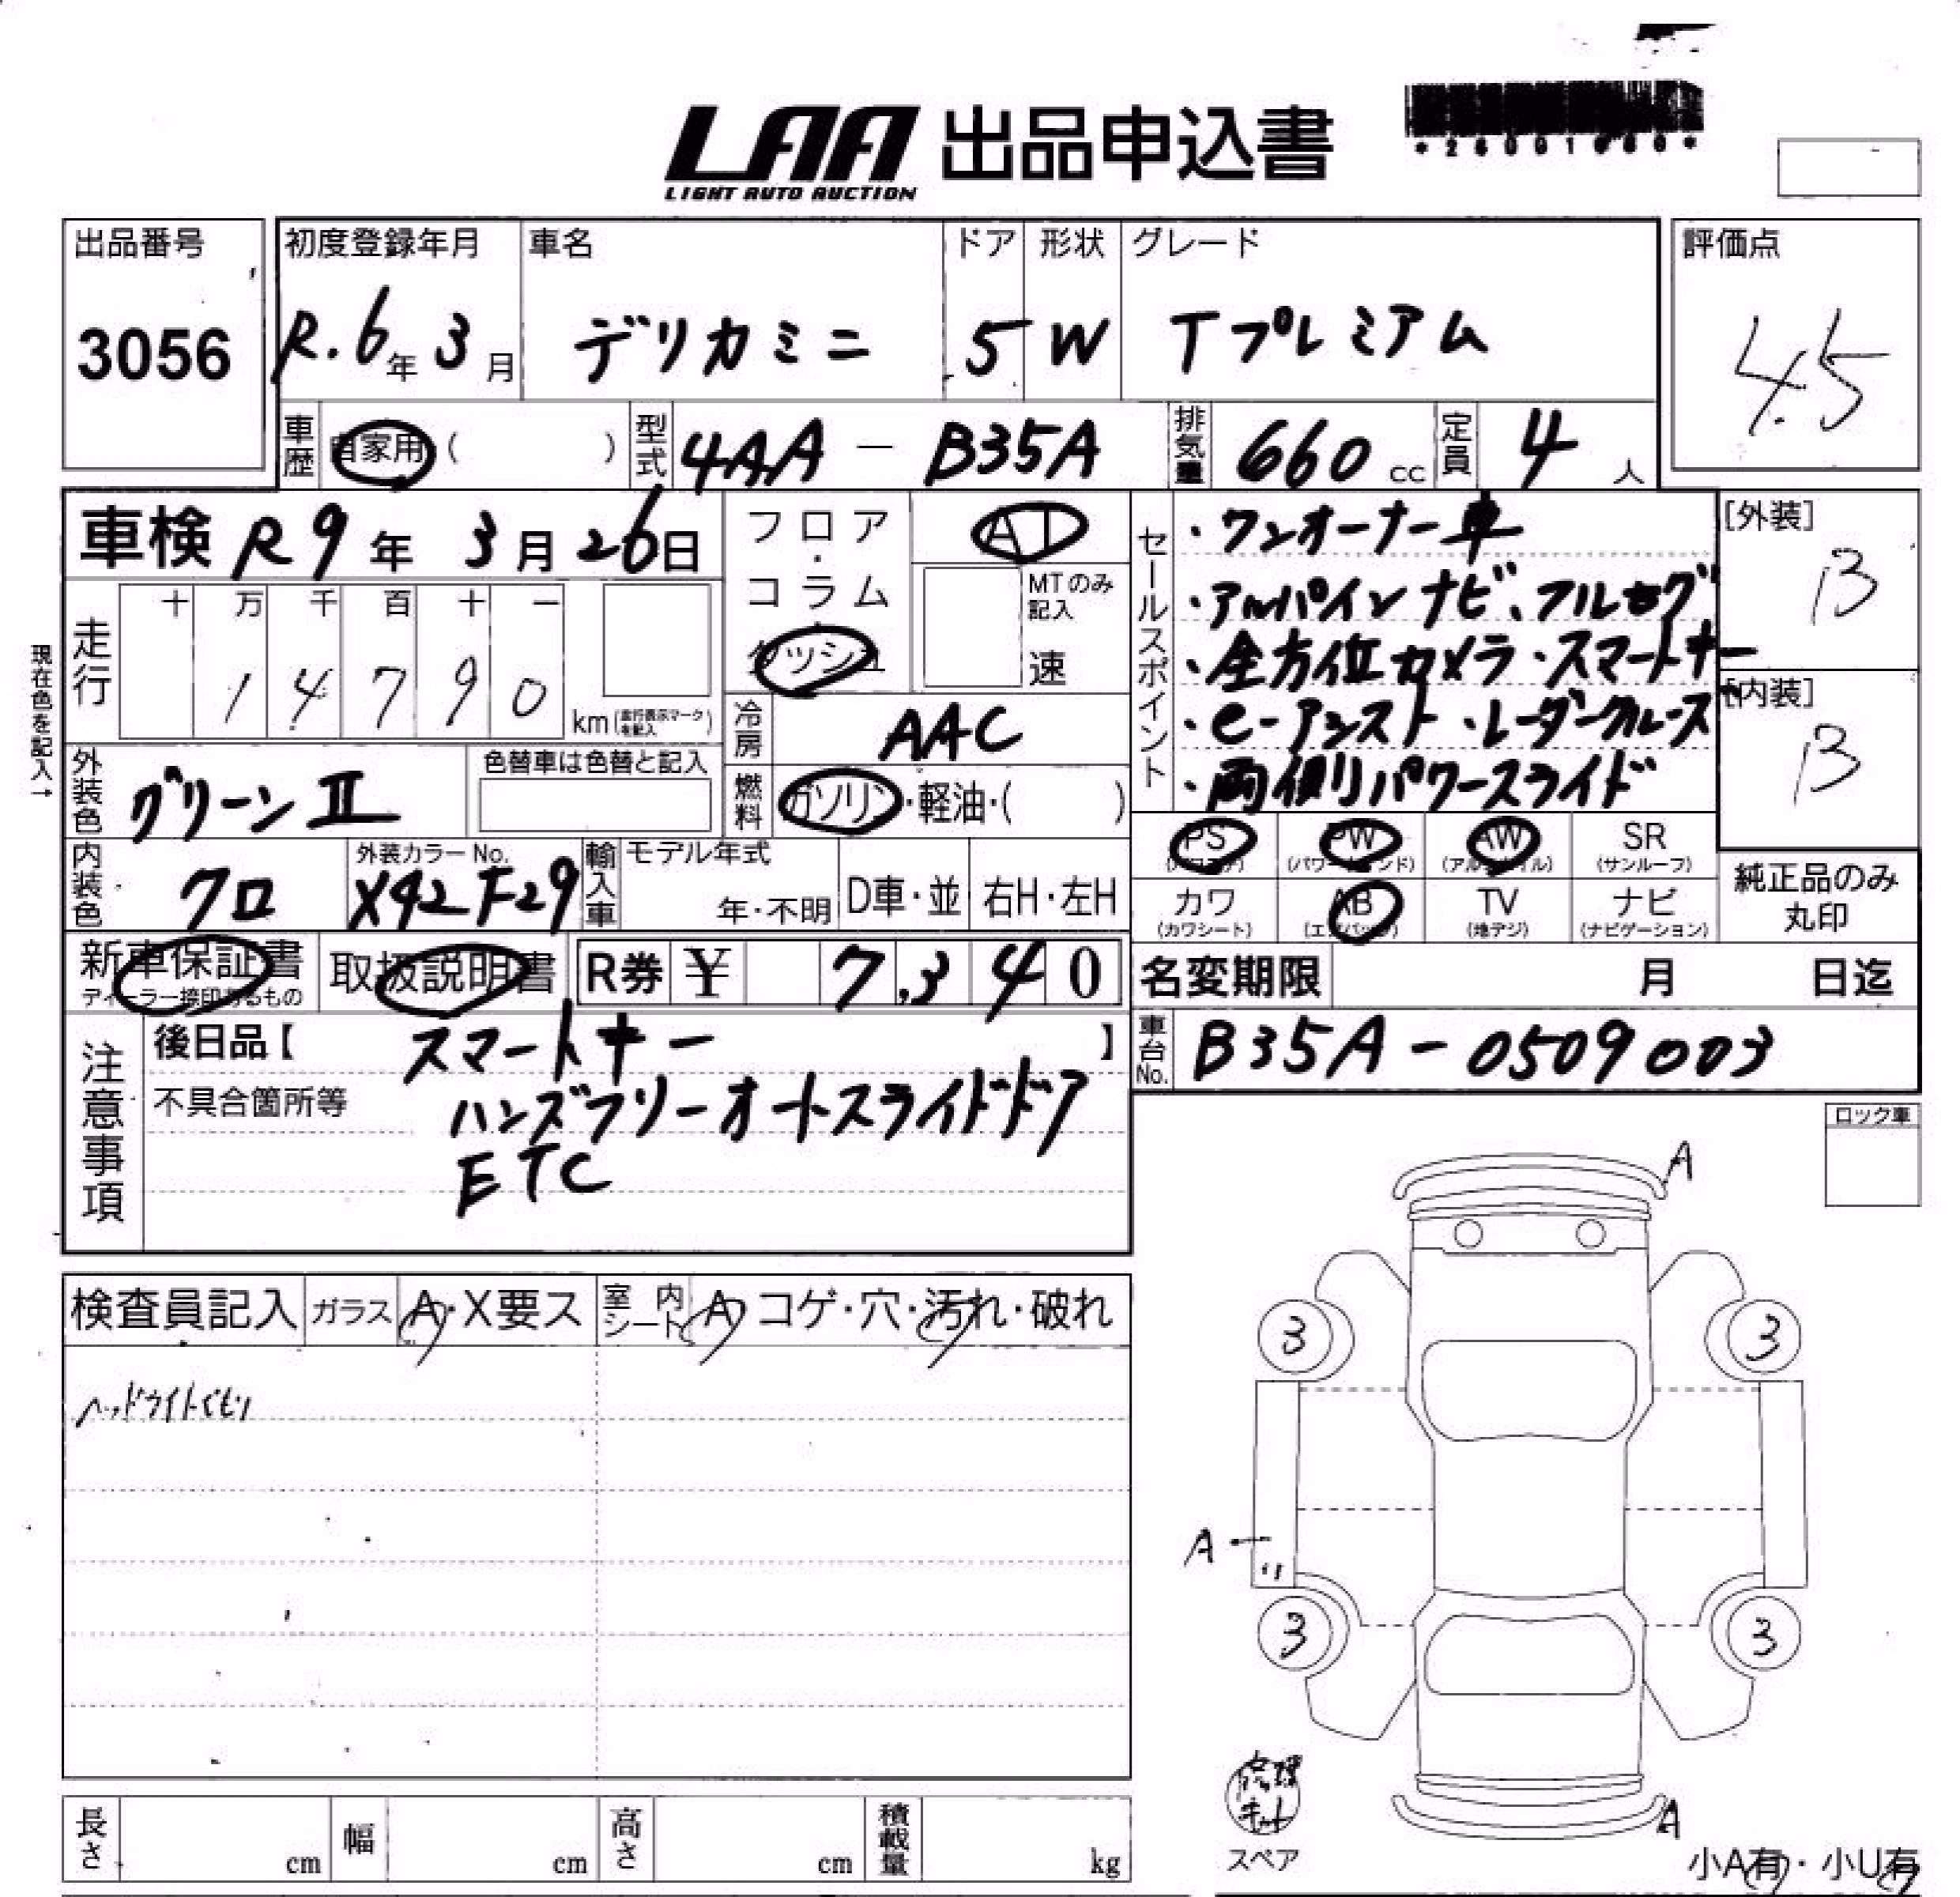 LAA 出品申込書
LIGHT AUTO AUCTION
出品番号
3056
初度登録年月
R.6年3月
車名
デリカミニ
ドア
5
形状
W
グレード
Tプレミアム
評価点
4.5
車歴
自家用( )
型式
4AA-B35A
排気量
660cc
定員
4人
車検 R9年3月26日
現在色を記入→
走行
十 万 千 百 十 一
1 4 7 9 0
km(走行表示マークを記入)
フロア・コラム・ダッシュ
AT
MTのみ記入
速
冷房
AAC
燃料
ガソリン・軽油・( )
外装色
グリーンⅡ
色替車は色替と記入
内装色
クロ
外装カラーNo.
X42F29
輸入車
モデル年式
年・不明
D車・並
右H・左H
セールスポイント
・ワンオーナー車
・アルパインナビ、フルセグ
・全方位カメラ・スマートキー
・e-アシスト・レーダークルーズ
・両側パワースライド
[外装]
B
[内装]
B
PS
PW
(パワーウインド)
AW
(アルミホイル)
SR
(サンルーフ)
カワ
(カワシート)
AB
(エアバッグ)
TV
(地デジ)
ナビ
(ナビゲーション)
純正品のみ丸印
新車保証書
ディーラー捺印あるもの
取扱説明書
R券 ¥ 7,340
名変期限 月 日迄
車台No.
B35A-0509003
注意事項
後日品【 スマートキー 】
不具合箇所等
ハンズフリーオートスライドドア
ETC
ロック車
検査員記入
ガラス
A・X要ス
室内シート
A コゲ・穴・汚れ・破れ
ヘッドライトくもり
A
3
3
A
3
3
A
修理キット
スペア
小A有・小U有
長さ cm
幅 cm
高さ cm
積載量 kg